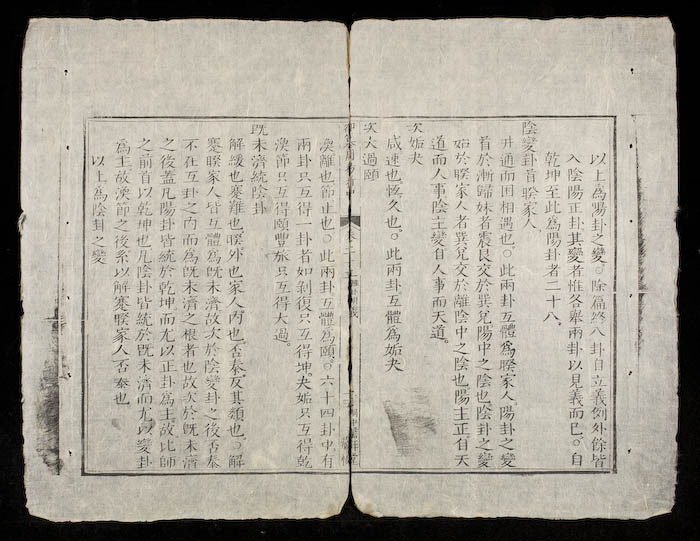 以上爲陽卦之變。除篇終八卦自立義例外餘皆
入陰陽正卦其變者惟各舉兩卦以見義而已。自
乾坤至此爲陽卦者二十八。
陰變卦首睽家人
井通而困相遇也。此兩卦互體爲睽家人陽卦之變
首於漸歸妹者震艮交於巽兌陽中之陰也陰卦之變
始於睽家人者巽兌交於離陰中之陰也陽主正自天
道而人事陰主變自人事而天道。
次姤夬
咸速也恆久也。此兩卦互體爲姤夬
次大過頤
御纂周易折中
卷二十二
渙離也節止也。此兩卦互體爲頤。六十四卦中有
兩卦只互得一卦者如剝復只互得坤。夬姤只互得乾
渙節只互得頤豐旅只互得大過。
既未濟統陰卦
解緩也蹇難也。睽外也家人內也。否泰反其類也。解
蹇睽家人皆互體爲既未濟故次於陰變卦之後否泰
不在互卦之內而爲既未濟之根者也故次於既未濟
之後蓋凡陽卦皆統於乾坤而尤以正卦爲主故比師
之前首以乾坤也凡陰卦皆統於既未濟而尤以變卦
爲主故渙節之後系以解蹇睽家人否泰也
以上爲陰卦之變